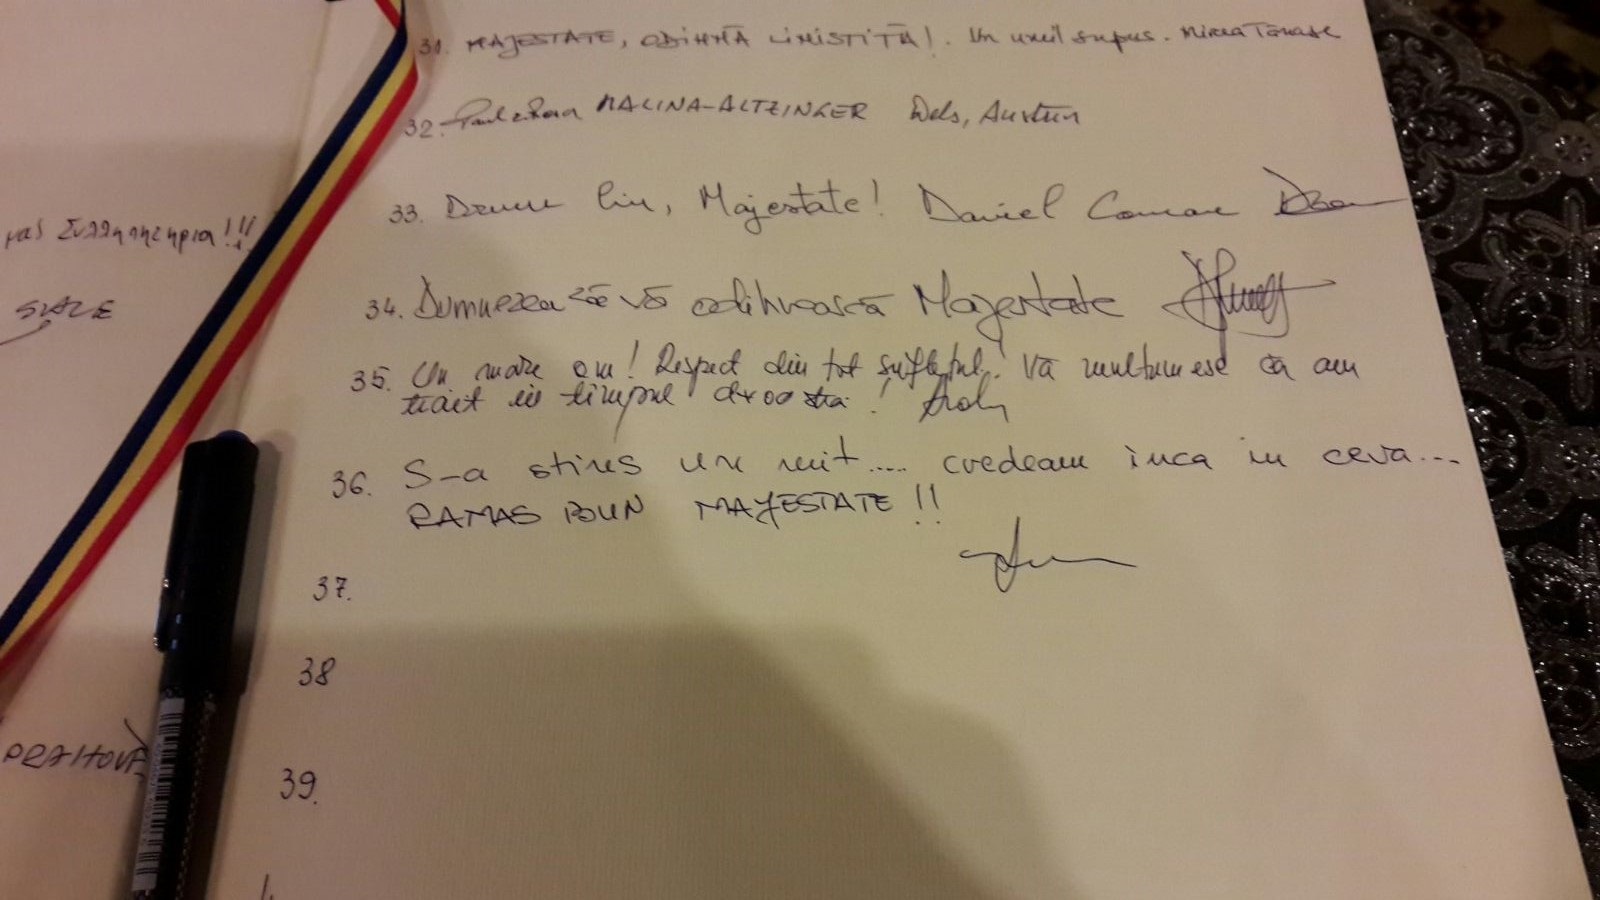 μας Συλλυπητήρια!!!
PRAHOVA
31. MAJESTATE, ODIHNĂ LINISTITĂ!. Un umil supus. Mircea Tănase
32. MALINA-ALTZINGER Wels, Austria
33. Drum lin, Majestate! Daniel Coman
34. Dumnezeu să vă odihnească Majestate
35. Un mare om! Respect din tot sufletul! Vă multumesc că am
trait in timpul dvoastra!
36. S-a stins un mit..... credeam inca in ceva...
RAMAS BUN MAJESTATE!!
37.
38
39.